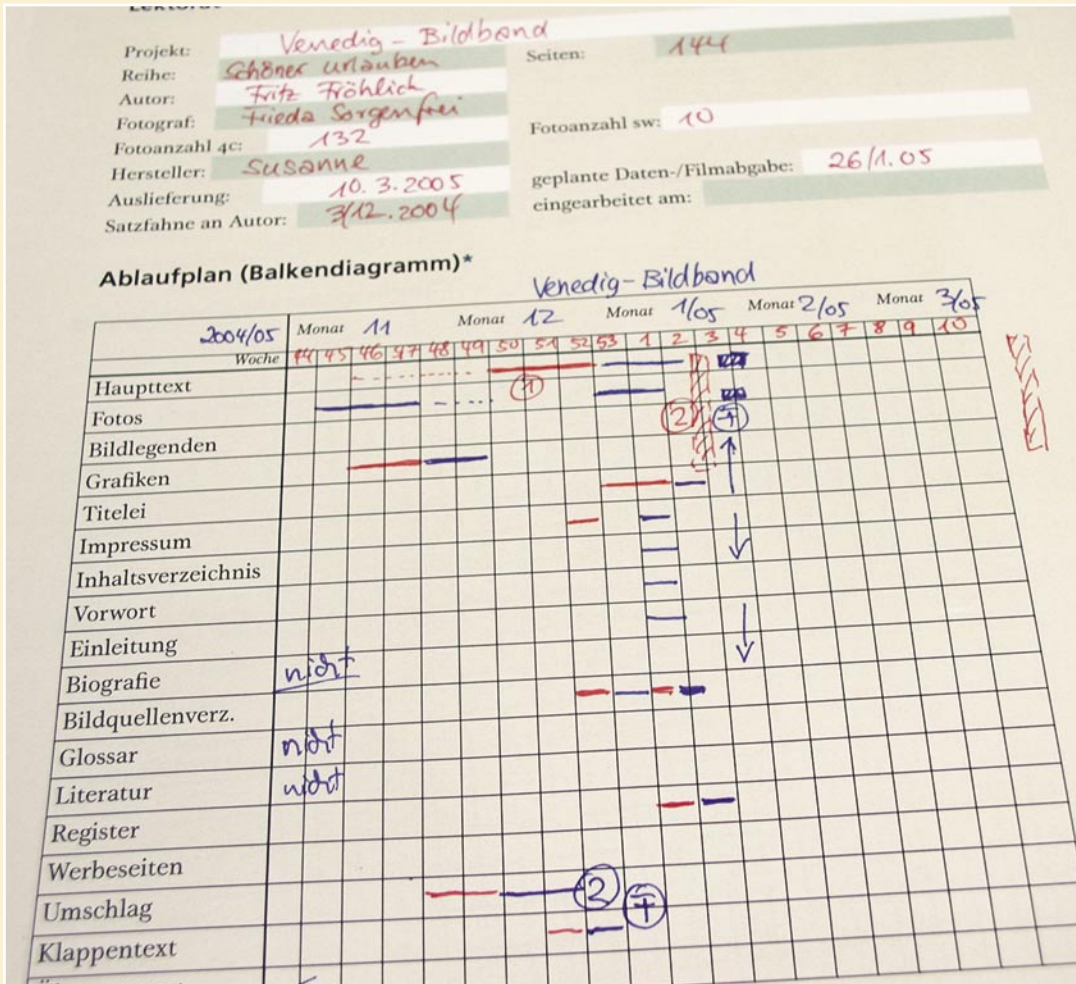 Projekt: Venedig - Bildband
Reihe: Schöner urlauben
Seiten: 144
Autor: Fritz Fröhlich
Fotograf: Frieda Sorgenfrei
Fotoanzahl 4c: 132
Fotoanzahl sw: 10
Hersteller: Susanne
Auslieferung: 10.3.2005
geplante Daten-/Filmabgabe: 26/1.05
Satzfahne an Autor: 3/12.2004
eingearbeitet am:
Ablaufplan (Balkendiagramm)*
Venedig-Bildband
2004/05 Monat 11 Monat 12 Monat 1/05 Monat 2/05 Monat 3/05
Woche 44 45 46 47 48 49 50 51 52 53 1 2 3 4 5 6 7 8 9 10
Haupttext
1
Fotos
2
Bildlegenden
Grafiken
Titelei
Impressum
Inhaltsverzeichnis
Vorwort
Einleitung
Biografie nicht
Bildquellenverz.
Glossar nicht
Literatur nicht
Register
Werbeseiten
Umschlag 2
Klappentext